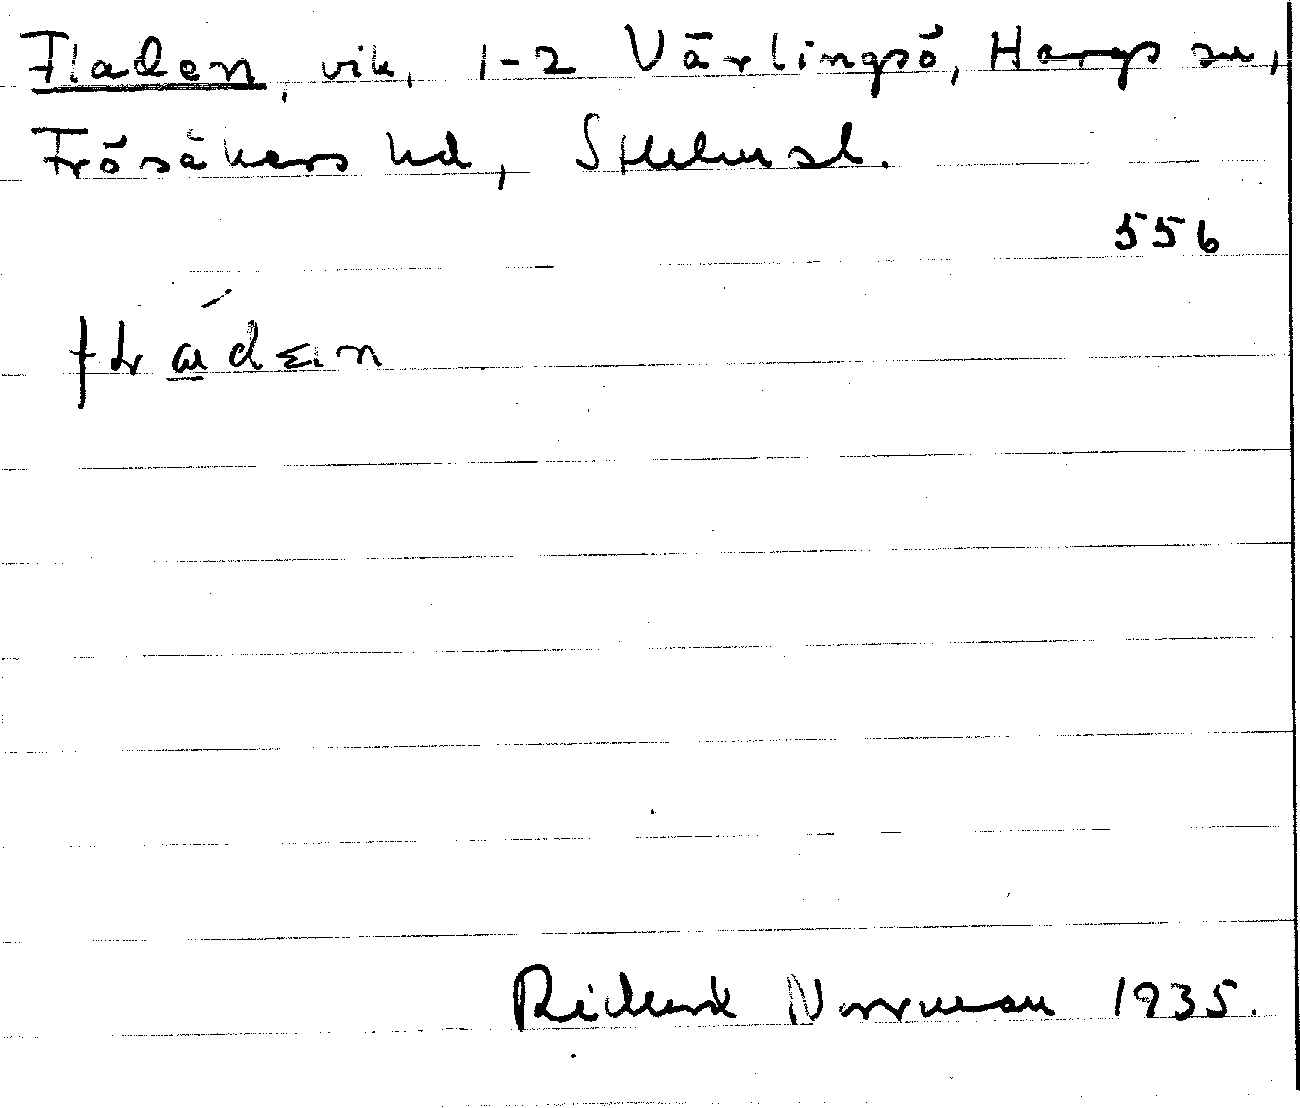 Fladen, vik, 1-2 Värlingsö, Hargs sn,
Frösåkers hd, Sthlms l.
556
Rickard Norrman 1935.